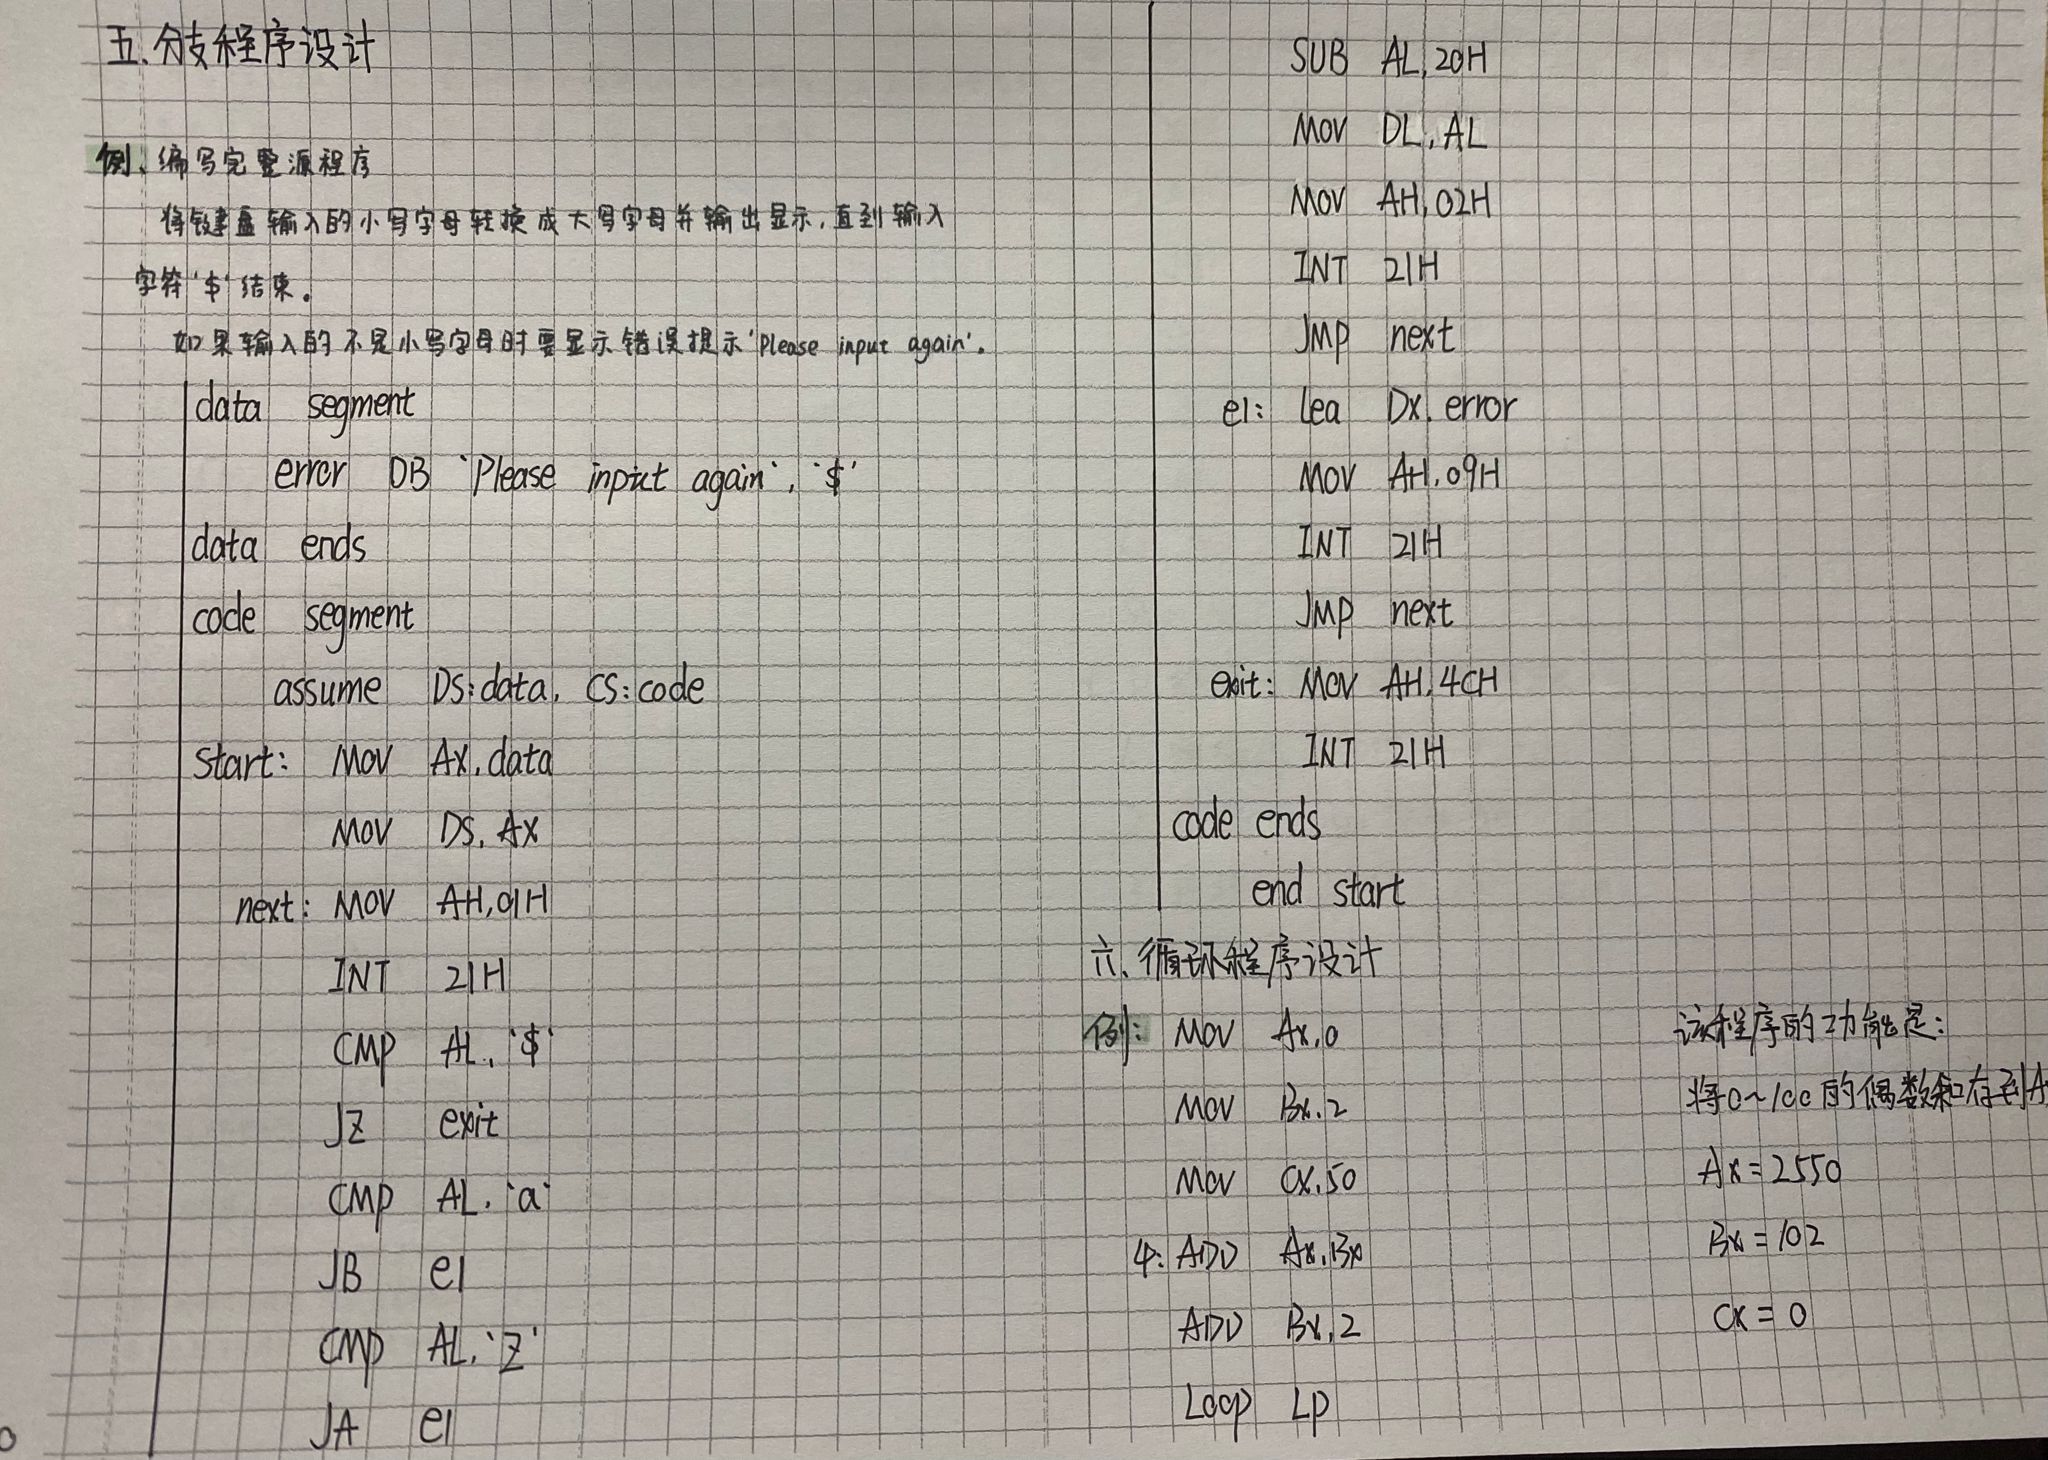 五、分支程序设计
例、编写完整源程序
将键盘输入的小写字母转换成大写字母并输出显示,直到输入
字符'$'结束。
如果输入的不是小写字母时要显示错误提示'please input again'.
data segment
error DB 'Please input again', '$'
data ends
code segment
assume DS:data, CS:code
start: MOV AX,data
MOV DS,AX
next: MOV AH,01H
INT 21H
CMP AL,'$'
JZ exit
CMP AL,'a'
JB e1
CMP AL,'Z'
JA e1
SUB AL,20H
MOV DL,AL
MOV AH,02H
INT 21H
JMP next
e1: Lea Dx,error
MOV AH,09H
INT 21H
JMP next
exit: MOV AH,4CH
INT 21H
code ends
end start
六、循环程序设计
例: MOV Ax,0
MOV Bx,2
MOV CX,50
LP: ADD Ax,Bx
ADD Bx,2
Loop LP
该程序的功能是:
将0~100的偶数和存到A
Ax=2550
Bx=102
CX=0